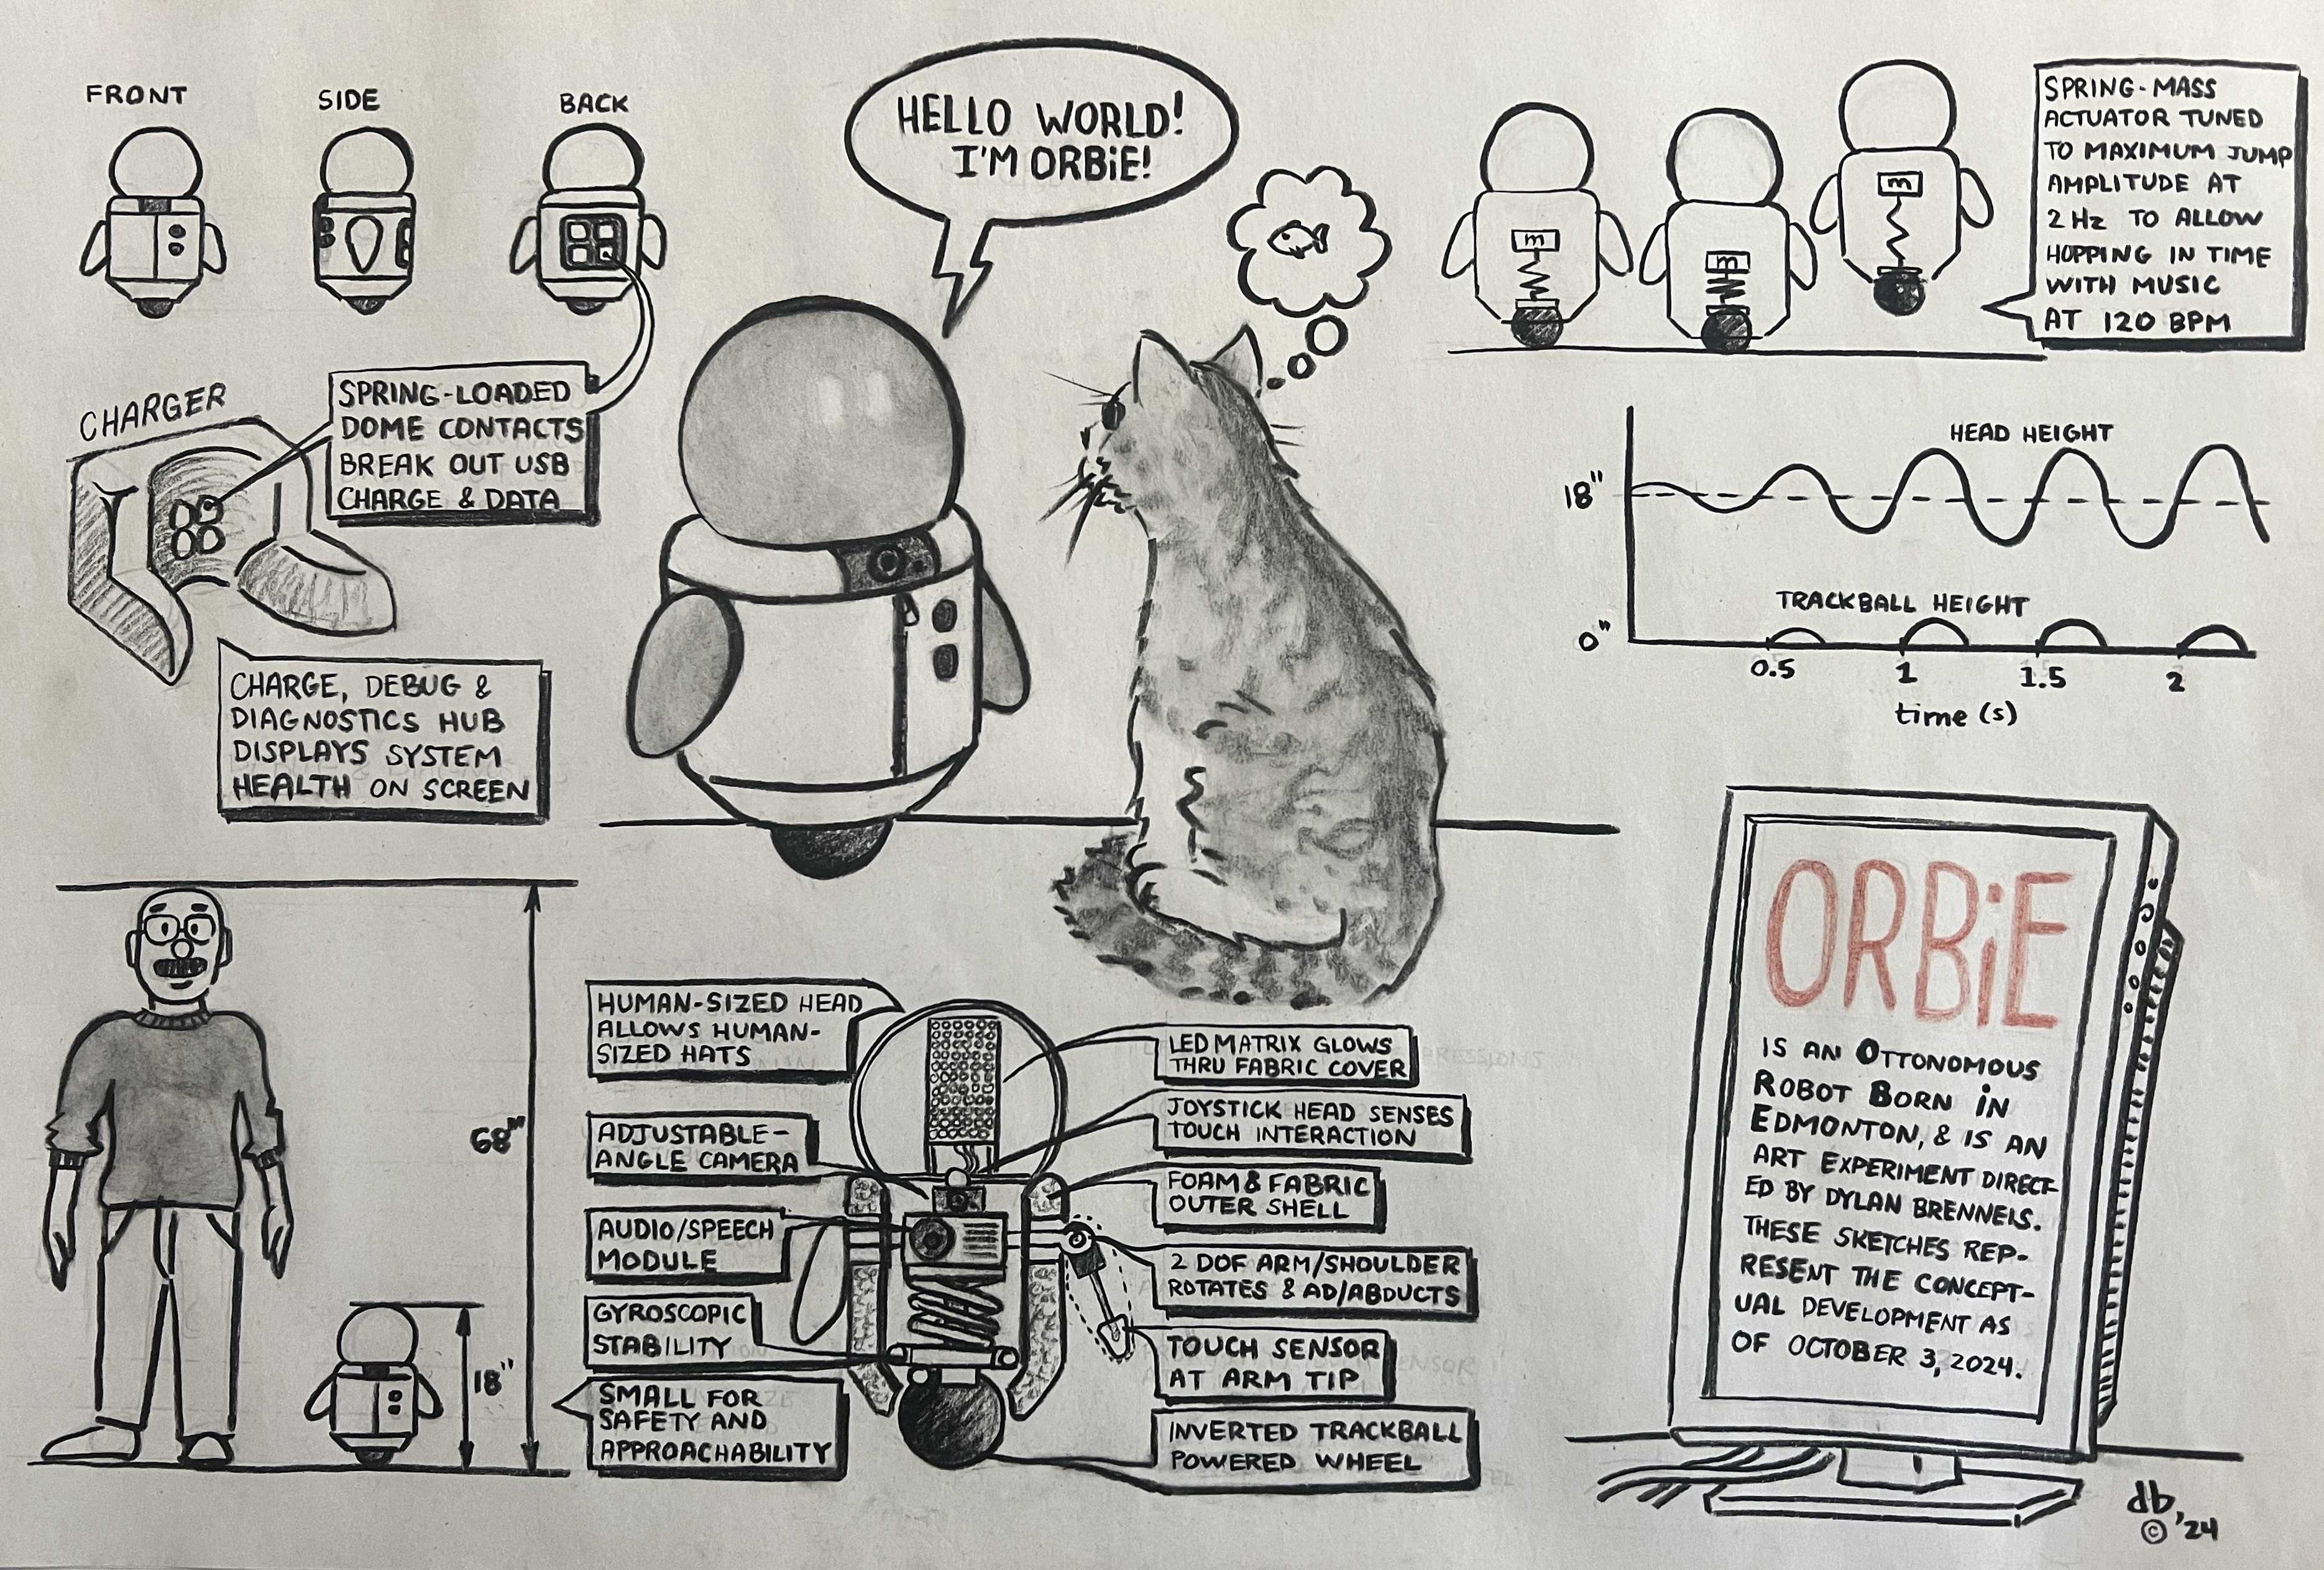 FRONT
SIDE
BACK
CHARGER
SPRING-LOADED
DOME CONTACTS
BREAK OUT USB
CHARGE & DATA
CHARGE, DEBUG &
DIAGNOSTICS HUB
DISPLAYS SYSTEM
HEALTH ON SCREEN
HELLO WORLD!
I'M ORBiE!
m
m
m
SPRING-MASS
ACTUATOR TUNED
TO MAXIMUM JUMP
AMPLITUDE AT
2 Hz TO ALLOW
HOPPING IN TIME
WITH MUSIC
AT 120 BPM
HEAD HEIGHT
18"
TRACKBALL HEIGHT
0"
0.5
1
1.5
2
time (s)
68"
18"
SMALL FOR
SAFETY AND
APPROACHABILITY
HUMAN-SIZED HEAD
ALLOWS HUMAN-
SIZED HATS
ADJUSTABLE-
ANGLE CAMERA
AUDIO/SPEECH
MODULE
GYROSCOPIC
STABILITY
LED MATRIX GLOWS
THRU FABRIC COVER
JOYSTICK HEAD SENSES
TOUCH INTERACTION
FOAM & FABRIC
OUTER SHELL
2 DOF ARM/SHOULDER
ROTATES & AD/ABDUCTS
TOUCH SENSOR
AT ARM TIP
INVERTED TRACKBALL
POWERED WHEEL
ORBiE
IS AN OTTONOMOUS
ROBOT BORN iN
EDMONTON, & IS AN
ART EXPERIMENT DIRECT-
ED BY DYLAN BRENNEIS.
THESE SKETCHES REP-
RESENT THE CONCEPT-
UAL DEVELOPMENT AS
OF OCTOBER 3, 2024.
db
© '24